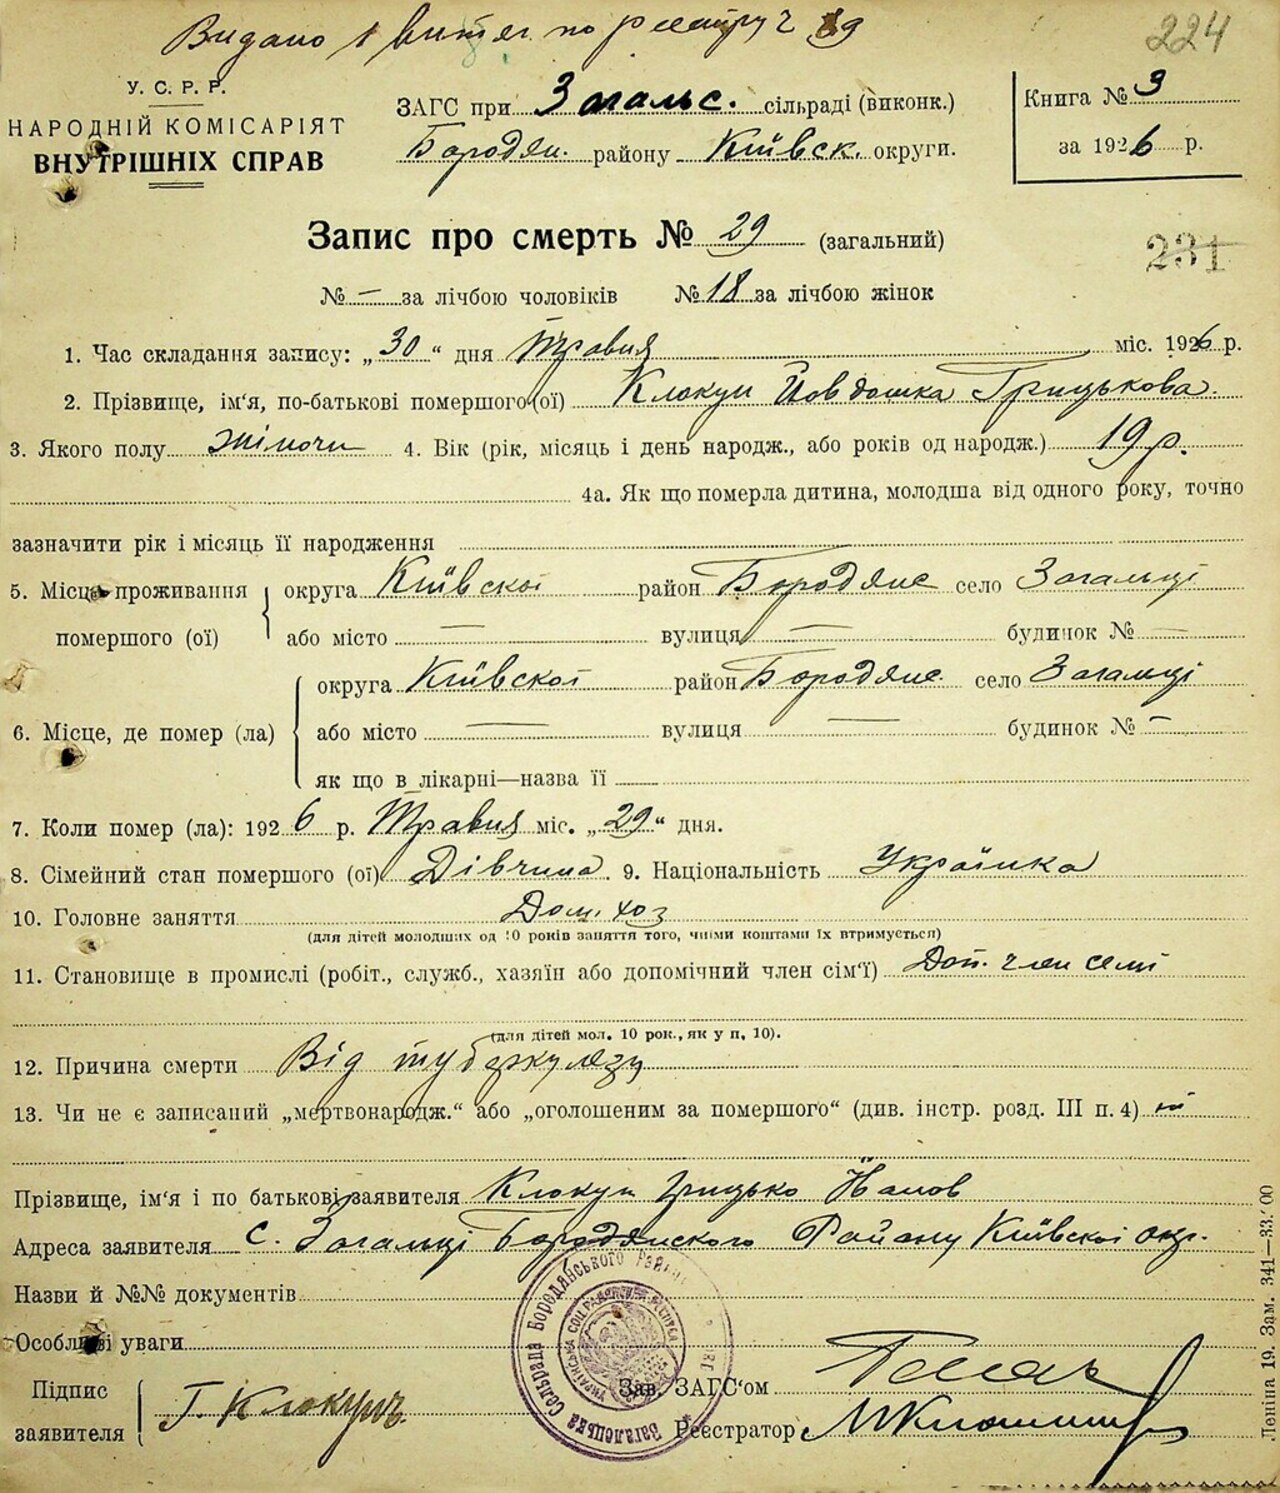 Видано 1 витяг по реєстру 29
224
У. С. Р. Р.
НАРОДНІЙ КОМІСАРІЯТ
ВНУТРІШНІХ СПРАВ
ЗАГС при Загальс. сільраді (виконк.)
Бородян. району Київск. округи.
Книга № 3
за 1926 р.
Запис про смерть № 29 (загальний)
231
№ — за лічбою чоловіків № 18 за лічбою жінок
1. Час складання запису: „30“ дня Травня міс. 1926 р.
2. Прізвище, ім'я, по-батькові помершого (ої) Клокун Йовдошка Грицькова.
3. Якого полу жіночи 4. Вік (рік, місяць і день народж., або років од народж.) 19 р.
4а. Як що померла дитина, молодша від одного року, точно
зазначити рік і місяць її народження
5. Місце проживання помершого (ої)
округа Київскої район Бородянс село Загальці
або місто — вулиця — будинок № —
6. Місце, де помер (ла)
округа Київскої район Бородянс. село Загальці
або місто — вулиця — будинок № —
як що в лікарні—назва її
7. Коли помер (ла): 1926 р. Травня міс. „29“ дня.
8. Сімейний стан помершого (ої) Дівчина. 9. Національність Українка
10. Головне заняття Дом. хоз
(для дітей молодших од 10 років заняття того, чиїми коштами їх втримується)
11. Становище в промислі (робіт., служб., хазяїн або допомічний член сім'ї) Доп. член семі
(для дітей мол. 10 рок., як у п. 10).
12. Причина смерти Від туберкулязу
13. Чи не є записаний „мертвонародж.“ або „оголошеним за помершого“ (див. інстр. розд. III п. 4) ні
Прізвище, ім'я і по батькові заявителя Клокун Грицько Йанов
Адреса заявителя с. Загальці Бородянского Району Київскої окр.
Назви й №№ документів
Особливі уваги
Підпис заявителя Г. Клокунъ
Зав. ЗАГС'ом
Реєстратор
Загалецька Сельрада Бородянського Району
УКРАЇНСЬКА СОЦ РАДЯНСЬКА РЕСПУБ
Леніна 19. Зам. 341—33. 00